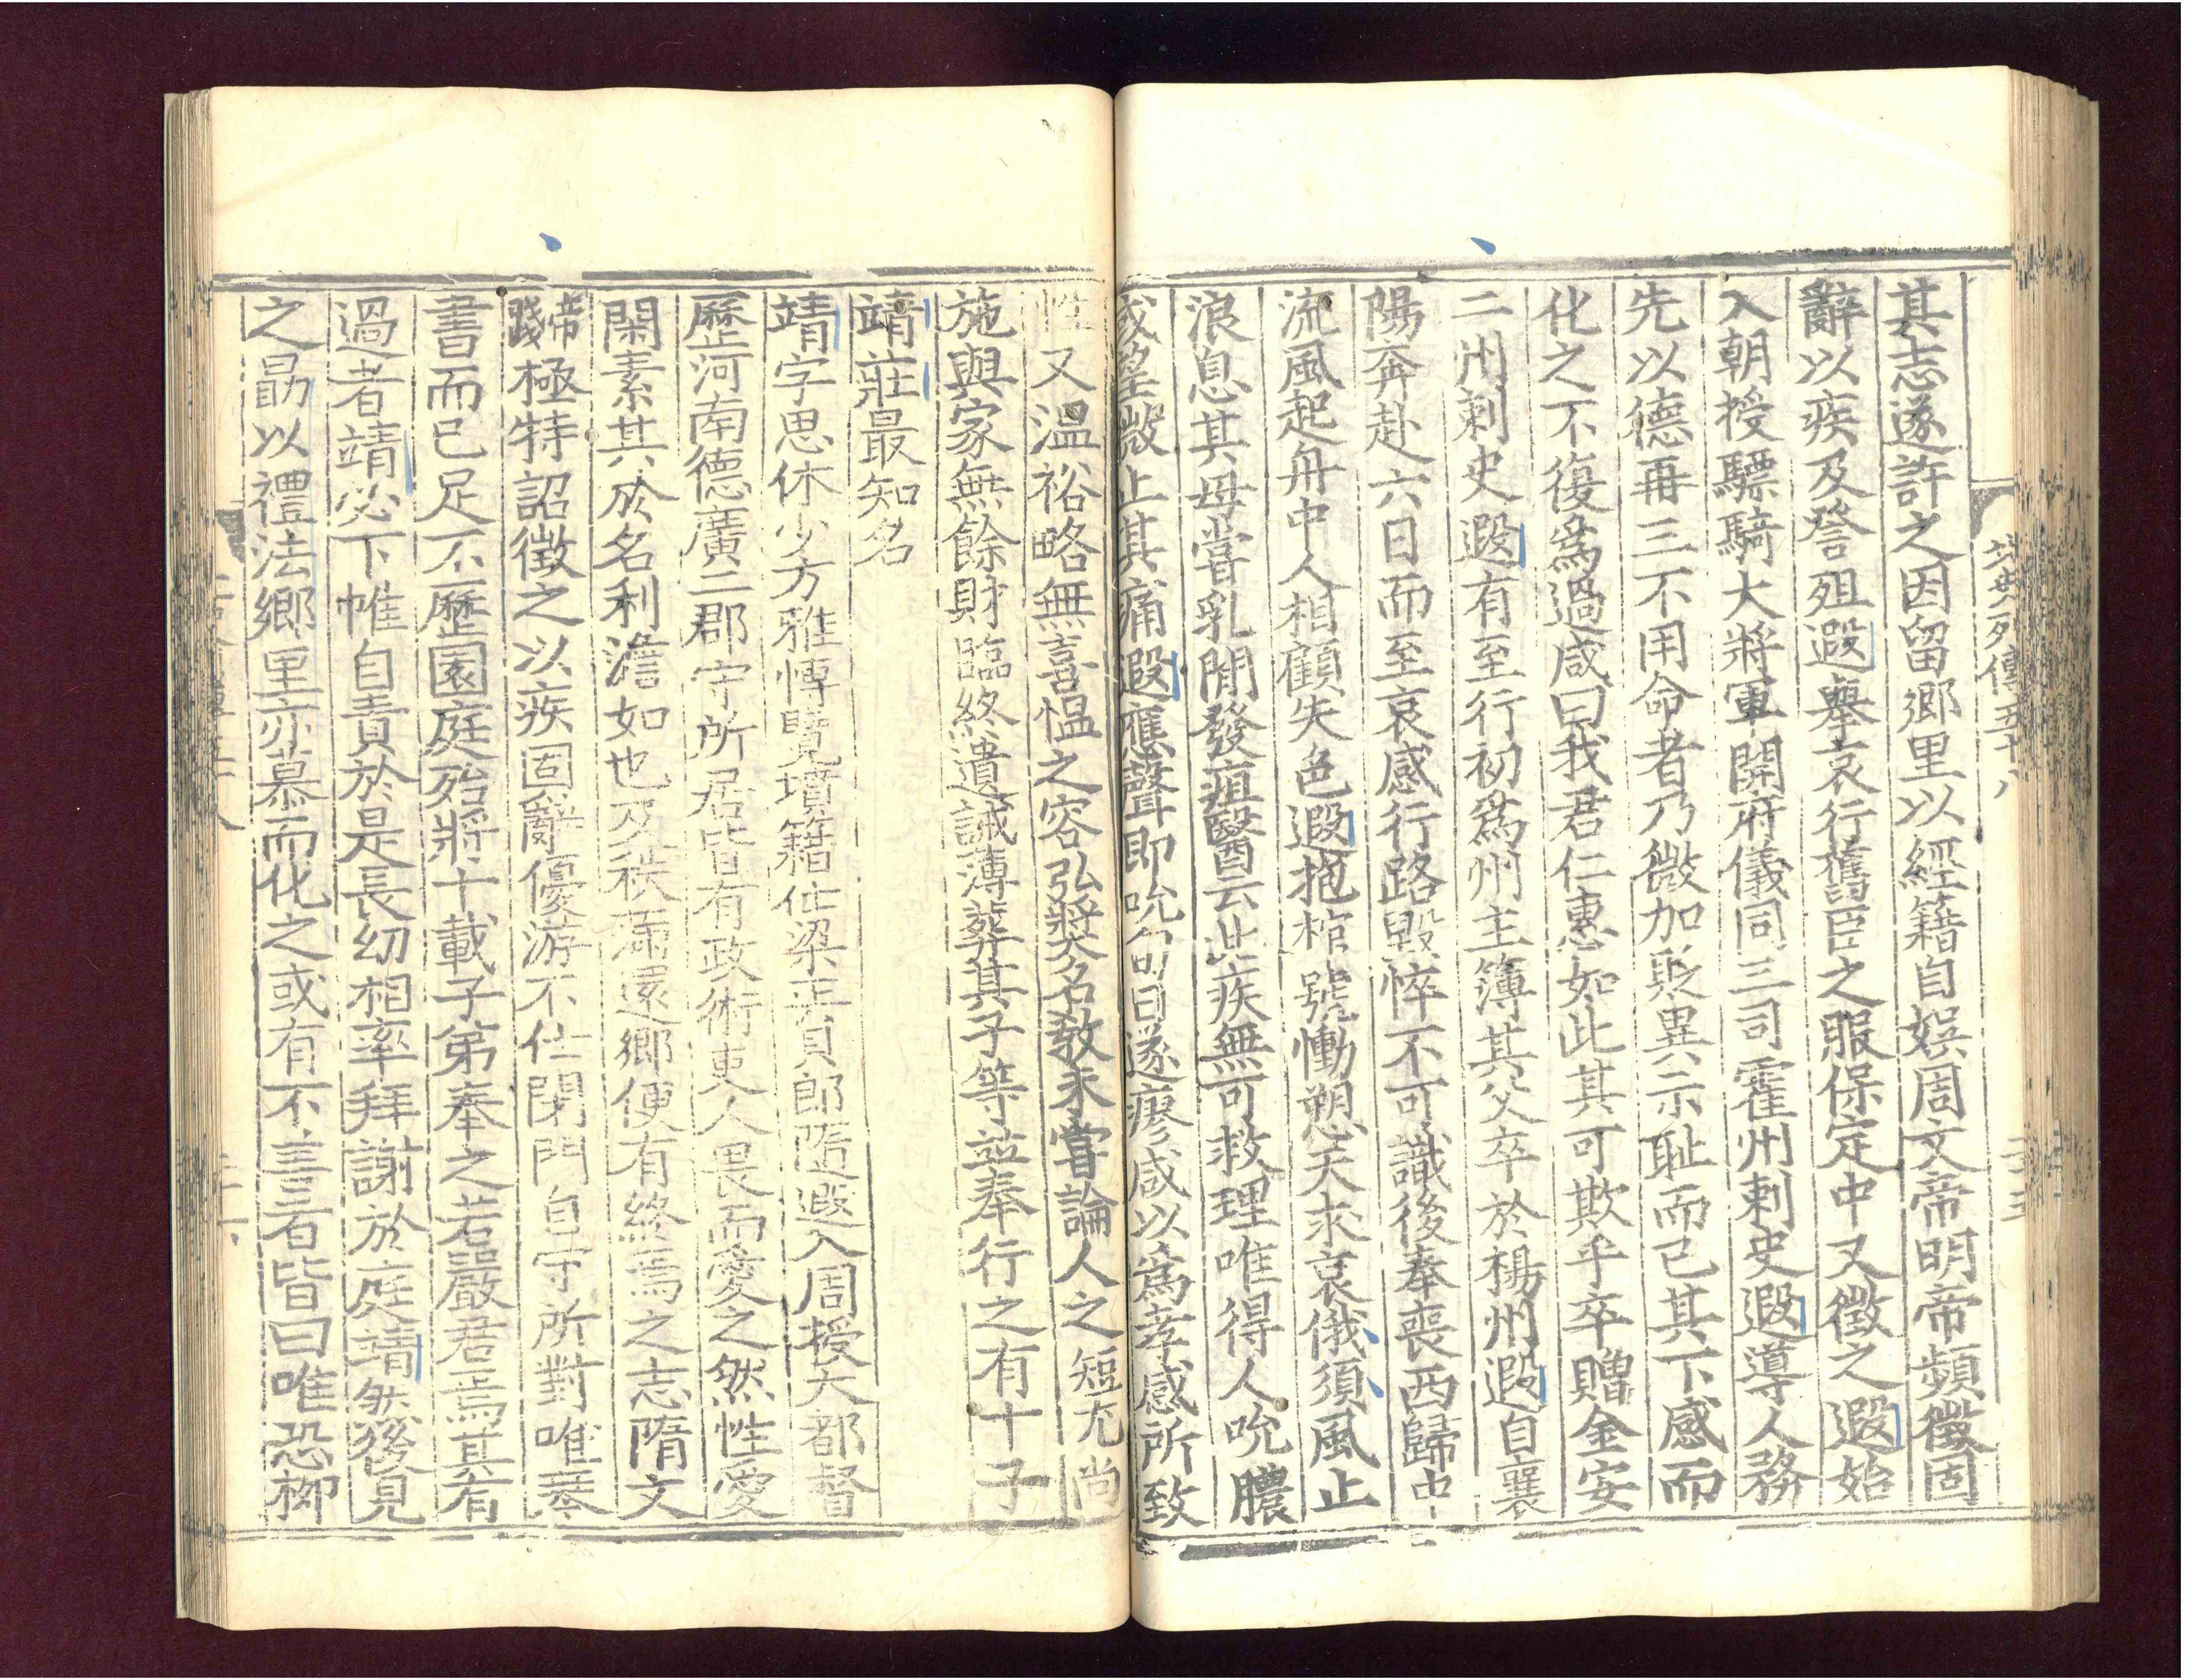 北史列傳五十八
其志遂許之因留鄉里以經籍自娯周文帝明帝頻徵固
辭以疾及詧殂遐舉哀行舊臣之服保定中又徵之遐始
入朝授驃騎大將軍開府儀同三司霍州刺史遐導人務
先以德再三不用命者乃微加貶異示恥而已其下感而
化之不復爲過咸曰我君仁惠如此其可欺乎卒贈金安
二州刺史遐有至行初爲州主簿其父卒於楊州遐自襄
陽奔赴六日而至哀感行路毀悴不可識後奉喪西歸中
流風起舟中人相顧失色遐抱棺號慟愬天求哀俄須風止
浪息其母嘗乳閒發疽醫云此疾無可救理唯得人吮膿
或望微止其痛遐應聲即吮旬日遂瘳咸以爲孝感所致
性又溫裕略無喜慍之容弘獎名教未嘗論人之短尤尚
施與家無餘財臨終遺誡薄葬其子等並奉行之有十子
靖莊最知名
靖字思休少方雅博覽墳籍仕梁正員郎隨遐入周授大都督
歷河南德廣二郡守所居皆有政術吏人畏而愛之然性愛
閑素其於名利澹如也及秩滿還鄉便有終焉之志隋文
帝踐極特詔徵之以疾固辭優游不仕閉門自守所對唯琴
書而已足不歷園庭殆將十載子弟奉之若嚴君焉其有
過者靖必下帷自責於是長幼相率拜謝於庭靖然後見
之勗以禮法鄉里亦慕而化之或有不善者皆曰唯恐柳